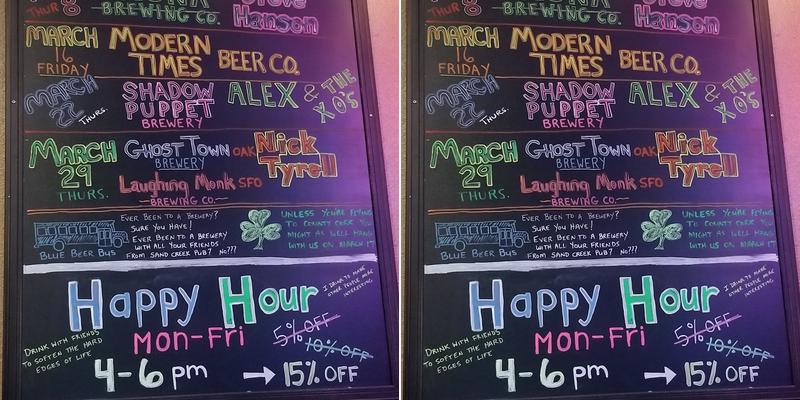 THUR 8 BREWING CO. Steve Hanson
MARCH 16 FRIDAY MODERN TIMES BEER CO.
MARCH 22 THURS. SHADOW PUPPET BREWERY ALEX & THE XO'S
MARCH 29 THURS. GHOST TOWN BREWERY OAK Nick Tyrell
Laughing Monk SFO
BREWING CO.
BLUE BEER BUS
EVER BEEN TO A BREWERY?
SURE YOU HAVE!
EVER BEEN TO A BREWERY
WITH ALL YOUR FRIENDS
FROM SAND CREEK PUB? NO???
UNLESS YOU'RE FLYING
TO COUNTY CORK YOU
MIGHT AS WELL HANG
WITH US ON MARCH 17
Happy Hour
I DRINK TO MAKE
OTHER PEOPLE MORE
INTERESTING
Mon-Fri
5% OFF
10% OFF
DRINK WITH FRIENDS
TO SOFTEN THE HARD
EDGES OF LIFE
4-6 pm → 15% OFF
THUR 8 BREWING CO. Steve Hanson
MARCH 16 FRIDAY MODERN TIMES BEER CO.
MARCH 22 THURS. SHADOW PUPPET BREWERY ALEX & THE XO'S
MARCH 29 THURS. GHOST TOWN BREWERY OAK Nick Tyrell
Laughing Monk SFO
BREWING CO.
BLUE BEER BUS
EVER BEEN TO A BREWERY?
SURE YOU HAVE!
EVER BEEN TO A BREWERY
WITH ALL YOUR FRIENDS
FROM SAND CREEK PUB? NO???
UNLESS YOU'RE FLYING
TO COUNTY CORK YOU
MIGHT AS WELL HANG
WITH US ON MARCH 17
Happy Hour
I DRINK TO MAKE
OTHER PEOPLE MORE
INTERESTING
Mon-Fri
5% OFF
10% OFF
DRINK WITH FRIENDS
TO SOFTEN THE HARD
EDGES OF LIFE
4-6 pm → 15% OFF